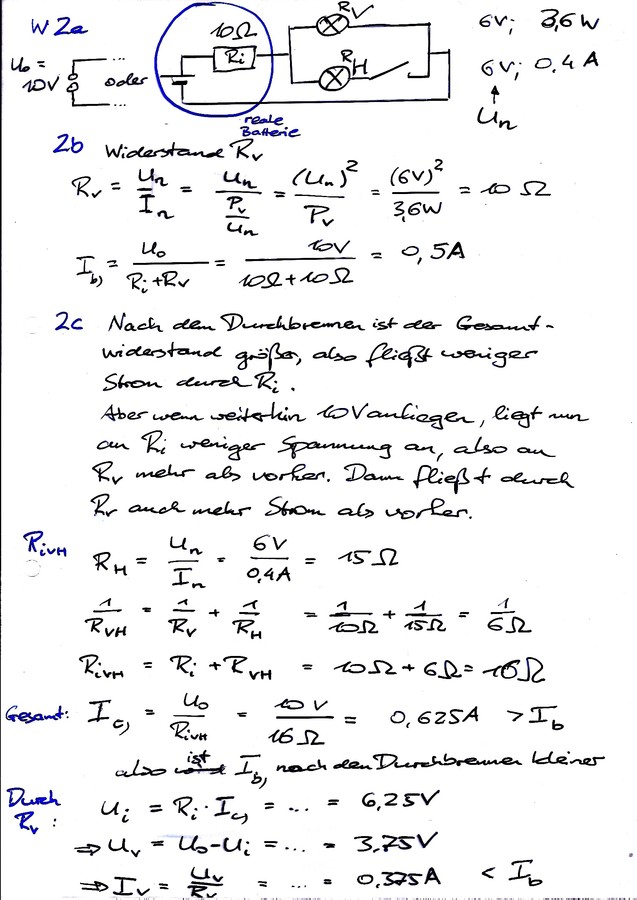 W2a
10Ω
R_V
6V; 3,6W
U₀ = 10V
oder
R_i
R_H
6V; 0,4A
U_n
reale Batterie
2b Widerstand R_V
R_V = U_n / I_n = U_n / (P_V / U_n) = (U_n)² / P_V = (6V)² / 3,6W = 10 Ω
I_b) = U₀ / (R_i + R_V) = 10V / (10Ω + 10Ω) = 0,5A
2c Nach dem Durchbrennen ist der Gesamt-
widerstand größer, also fließt weniger
Strom durch R_i.
Aber wenn weiterhin 10V anliegen, liegt nun
an R_i weniger Spannung an, also an
R_V mehr als vorher. Dann fließt durch
R_V auch mehr Strom als vorher.
R_iVH R_H = U_n / I_n = 6V / 0,4A = 15Ω
1/R_VH = 1/R_V + 1/R_H = 1/10Ω + 1/15Ω = 1/6Ω
R_iVH = R_i + R_VH = 10Ω + 6Ω = 16Ω
Gesamt: I_c) = U₀ / R_iVH = 10V / 16Ω = 0,625A > I_b
also ist I_b) nach den Durchbrennen kleiner
Durch R_V: U_i = R_i · I_c) = ... = 6,25V
⇒ U_V = U₀ - U_i = ... = 3,75V
⇒ I_V = U_V / R_V = ... = 0,375A < I_b